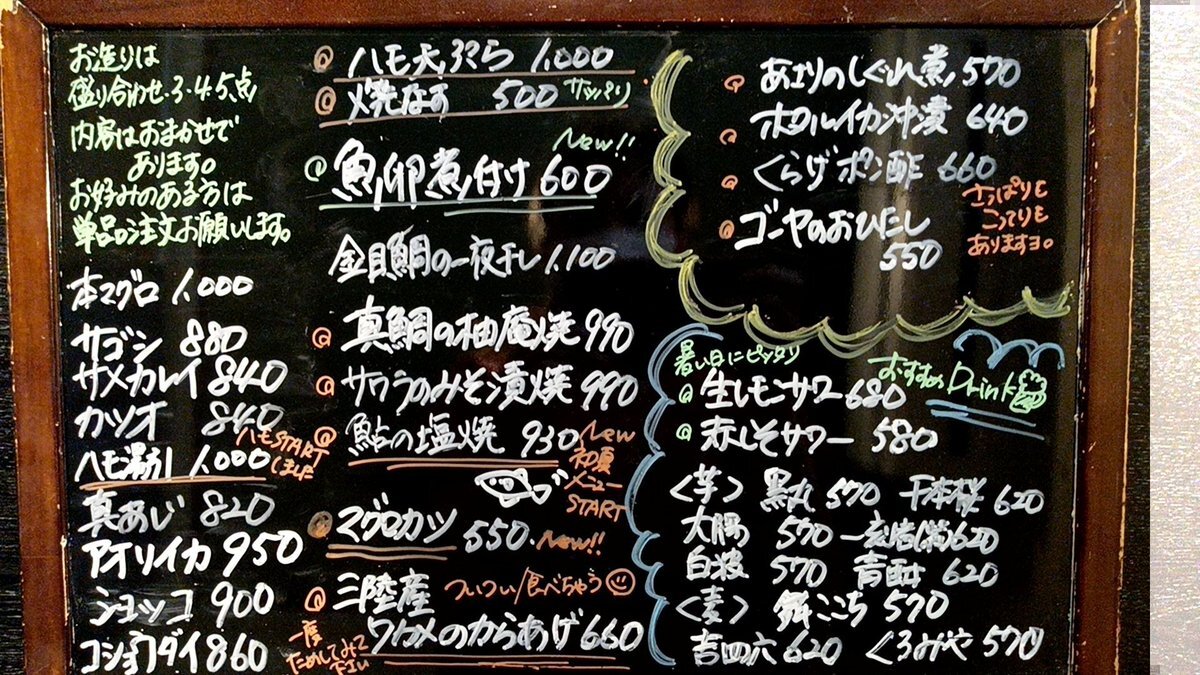 お造りは
盛り合わせ・3・4・5点
内容はおまかせで
あります。
お好みのある方は
単品ご注文お願いします。
本マグロ 1,000
サゴシ 880
サメカレイ 840
カツオ 840
ハモSTART
しました
ハモ湯引 1,000
真あじ 820
アオリイカ 950
ショッコ 900
コショウダイ 860
ハモ天ぷら 1,000
焼なす 500 サッパリ
New!!
魚卵煮付け 600
金目鯛の一夜干し 1,100
真鯛の柚庵焼 990
サワラのみそ漬焼 990
鮎の塩焼 930
New
初夏
メニュー
START
マグロカツ 550 New!!
三陸産 ついつい食べちゃう
ワカメのからあげ 660
一度
ためしてみて
下さい
あさりのしぐれ煮 570
ホタルイカ沖漬 640
くらげポン酢 660
ゴーヤのおひたし
550
さっぱりも
こってりも
ありますヨ。
おすすめ Drink
暑い日にピッタリ
生レモンサワー 680
赤しそサワー 580
〈芋〉 黒丸 570 千本桜 620
大隅 570 一刻者(満) 620
白波 570 青酎 620
〈麦〉 舞ここち 570
吉四六 620 くろみや 570